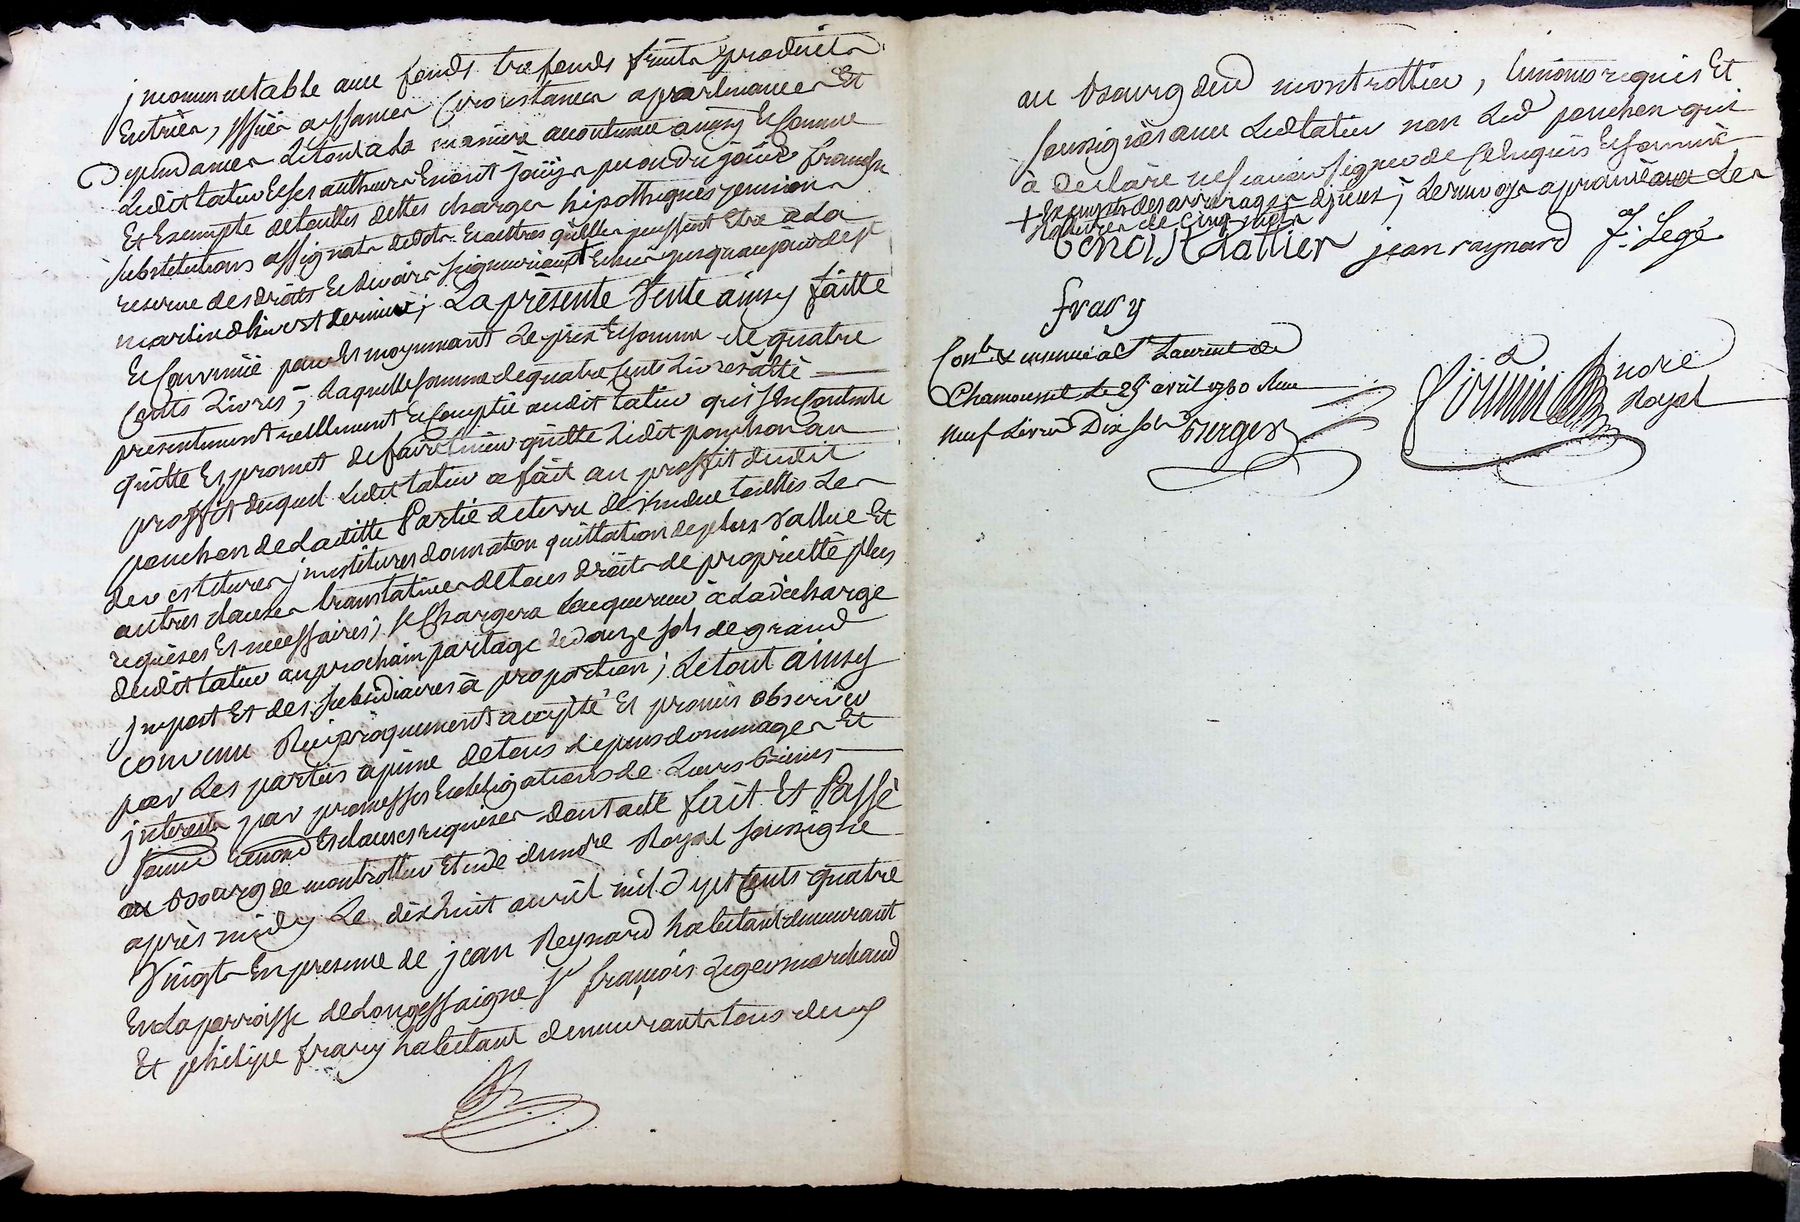 jncommuctable avec fonds tres fonds fruits produits
Entrées, issües aysances circonstances apartenances Et
Dependances Letout a la maniere accoutumée ainsy Et comme
Ledit tatieu Et ses autheurs En ont joüy ou pu ou du joüir franche
Et Exempte de touttes dettes charges hipotheques pensions
substitutions assignats de dots Et autres qu'elles puissent Etre a la
reserve des droits Et devoirs seigneuriaux + Echus jusqu'au jour de st
martin d'hiver dernier; La présente Vente ainsy faitte
Et convenüe pour Et moyennant Le prix Et somme de quatre
Cents Livres; Laquelle somme de quatre Cents Livres a été
presentement réellement Et comptée audit tatieu qui s'En contente
quitte Et promet de faire tenir quitte Ledit ponchon au
proffit duquel Ledit tatieu a fait au proffit dudit
ponchon de Laditte Partie de terre de Vendue touttes Les
devestitures jnvestitures donnation quittation de plus Vallüe Et
autres clauses translatives de tous droits de proprieté plus
requises Et necessaires; se Chargera Lacquereur à La décharge
dudit tatieu au prochain partage de douze sols de grand
jmpost Et des subsidiaires à proportion; Le tout ainsy
convenu Réciproquement accepté Et promis observer
par Les parties a peine de tous depens dommages Et
jnterests par promesses Et obligations de Leurs biens
soumis renon Et clauses requises dont acte fait Et Passé
au bourg de montrottier Etude du nore Royal soussigné
après midy Le dix huit avril mil sept Cents quatre
Vingts En presence de jean Reynard habitant demeurant
En La parroisse de Longessaigne Sr françois Leger marchand
Et philipe frary habitant demeurants tous deux
au bourg dud montrottier, temoins requis Et
soussignés avec Led tatieu non Led ponchon qui
à declaré ne sçavoir signer de ce Enquis Et sommé
+ Exempte des arrerages d'iceux; Le renvoy approuvé aux Les
natures de Cinq mots
Benoist tattier jean raynard F. Legé
frary
Conlé & insinué a St Laurent de
Chamousset Le 25 avril 1780 Reçu
neuf Livres Dix sols Verger
nore
Royal